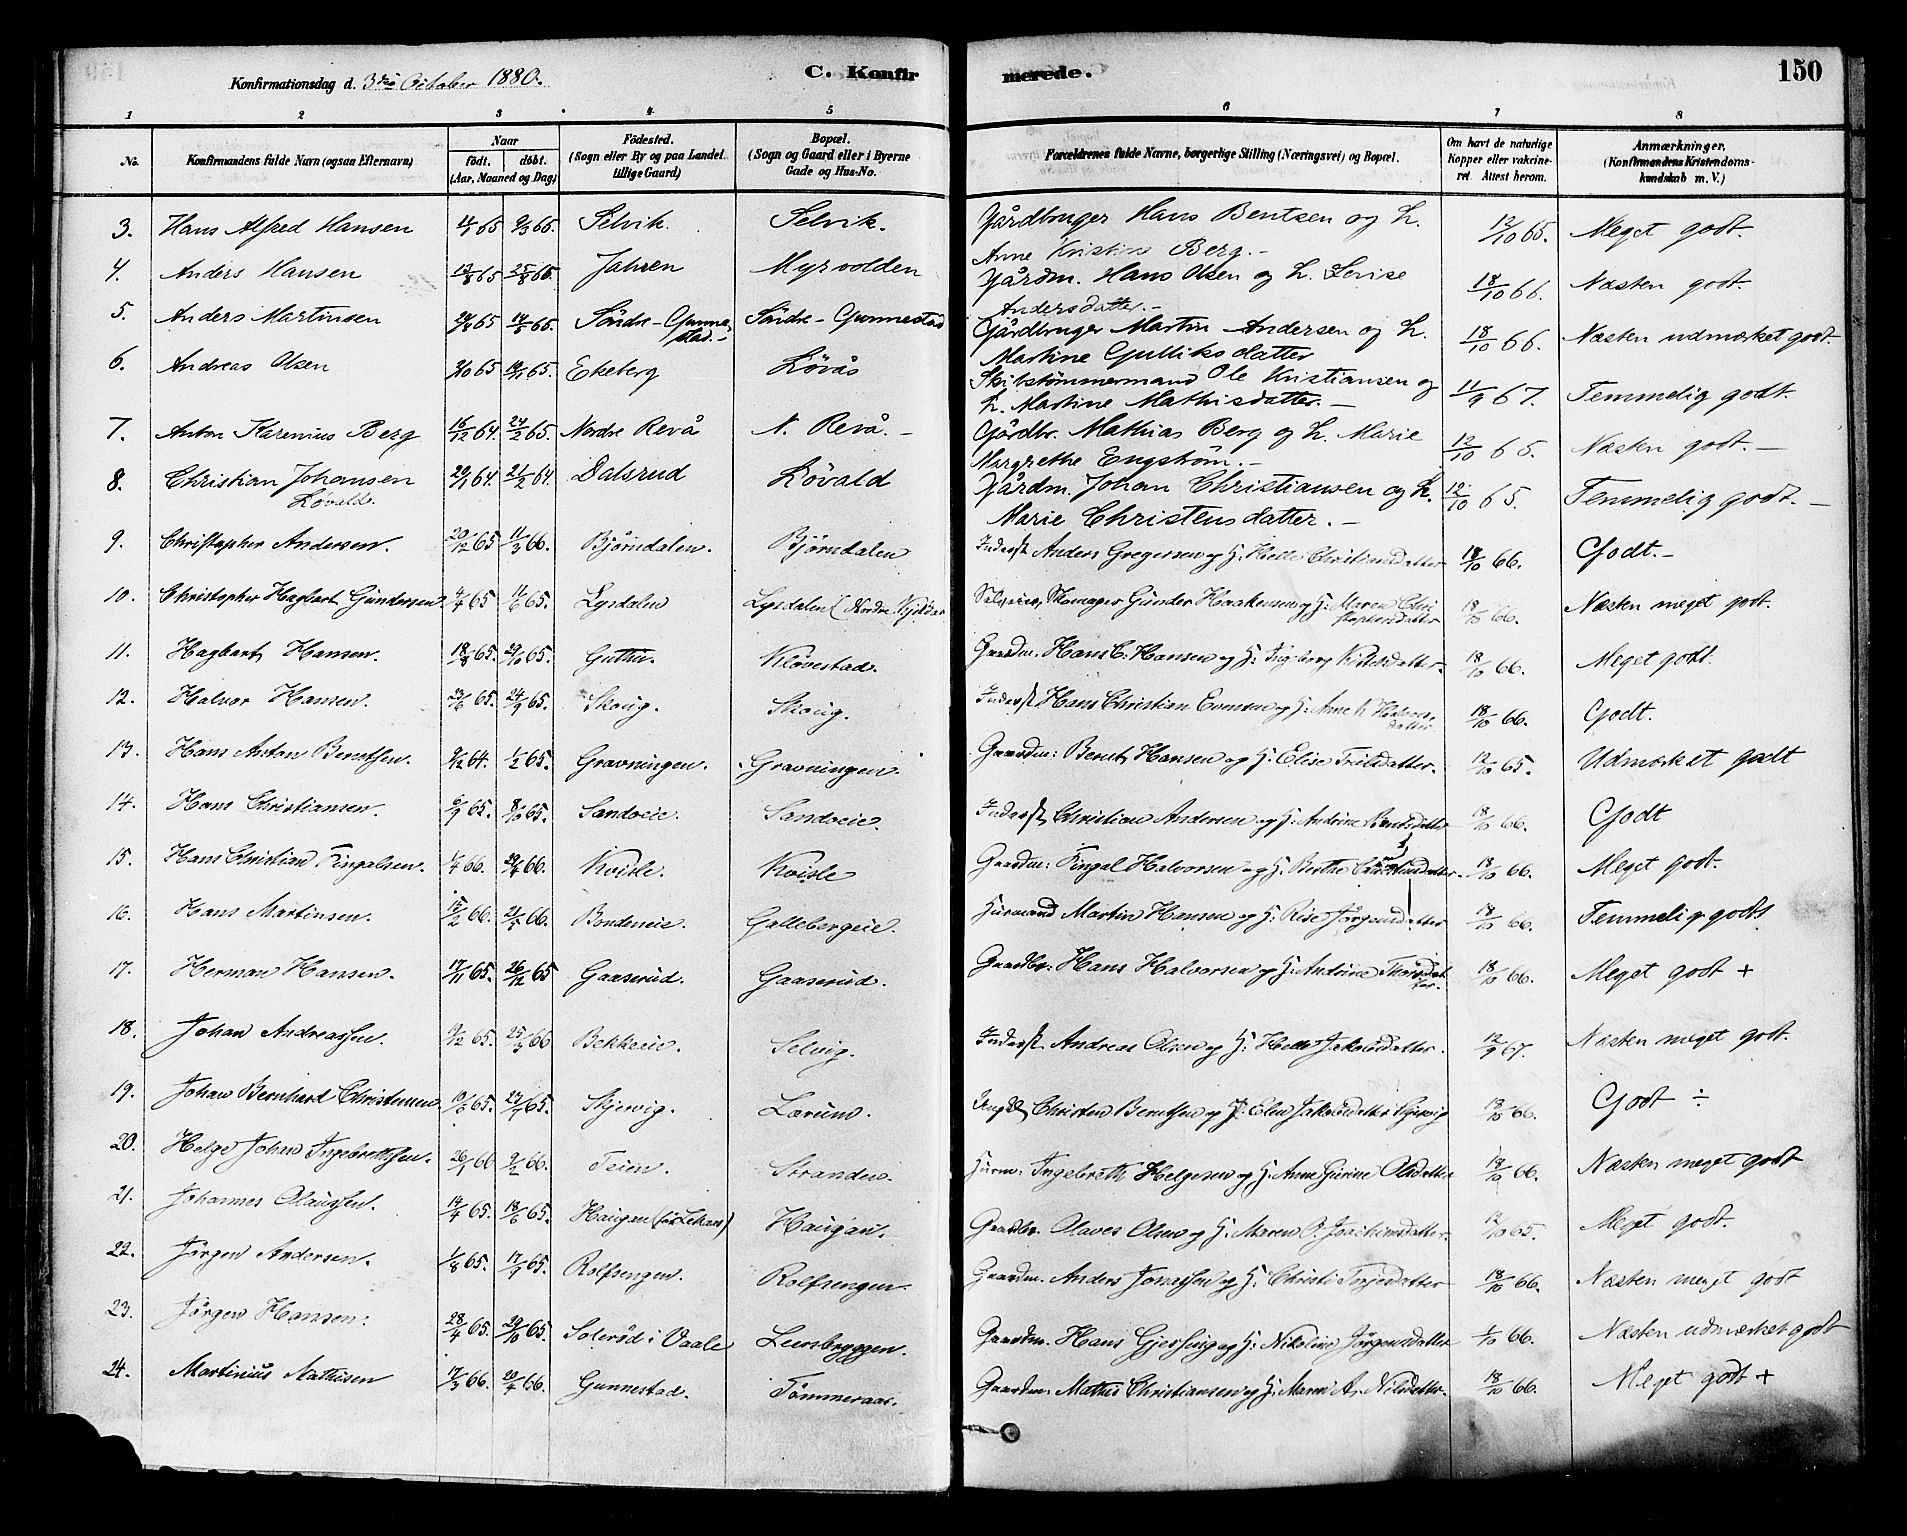 C. Konfirmerede.
150
Konfirmationsdag d. 3die October 1880.
1 2 3 4 5 6 7 8
No. Konfirmandens fulde Navn (ogsaa Efternavn) Naar födt. döbt. (Aar, Maaned og Dag) Födested. (Sogn eller By og paa Landet tillige Gaard) Bopæl. (Sogn og Gaard eller i Byerne Gade og Hus-No. Forældrenes fulde Navne, borgerlige Stilling (Næringsvei) og Bopæl. Om havt de naturlige Kopper eller vakcineret. Attest herom. Anmærkninger, (Konfirmandens Kristendomskundskab m. V.)
3. Hans Alfred Hansen Selvik. Selvik. Gårdbruger Hans Bentsen og h. Anne Kristine Berg.- 12/10 65. Meget godt.
4. Anders Hansen 25/8 65. Jahren Myrvolden Gårdm. Hans Olsen og h. Lovise Andersdatter.- 18/10 66. Næsten godt.
5. Anders Martinsen Söndre-Gunnestad.- Söndre-Gunnestad Gårdbruger Martin Andersen og h. Martine Gulliksdatter 18/10 66. Næsten udmærket godt.
6. Andreas Olsen Ekeberg Lövås Skibstömmermand Ole Kristiansen og h. Martine Mathisdatter.- 11/9 67. Temmelig godt.
7. Anton Karenius Berg 16/12 64. 27/2 65. Nordre Revå N. Revå.- Gårdbr. Mathias Berg og h. Marie Margrethe Engström.- 12/10 65. Næsten godt.-
8. Christian Johansen Lövald. 29/1 64. 21/2 64. Dalsrud Lövald Gårdm. Johan Christiansen og h. Marie Christensdatter.- 12/10 65. Temmelig godt.-
9. Christopher Andersen. 20/12 65 11/3 66. Björndalen. Björndalen Inderst Anders Gregersen og H: Helle Christiansdatter 18/10 66. Godt.-
10. Christopher Hagbart Gundersen 4/4 65 11/6 65. Lysdalen Lysdalen (Nordre Skomager Gunder Haakensen og H: Maren Christophersdatter 18/10 66. Næsten meget godt.
11. Hagbart Hansen. 18/8 65. 29/10 65. Guthu. Klövestad. Gaardm. Hans C. Hansen og H: Ingborg Kittelsdatter. 18/10 66. Meget godt.
12. Halvor Hansen. 24/9 65. Skoug. Skoug. Inderst Hans Christian Evensen og H: Anne K Halvorsdatter 18/10 66. Godt.
13. Hans Anton Berntsen. 9/12 64. 1/2 65. Gravningen. Gravningen. Gaardm: Bernt Hansen og H: Elise Frilsdatter. 12/10 65. Udmærket godt
14. Hans Christiansen. 6/9 65. 8/10 65. Sandveie. Sandveie. Inderst Christian Andersen og H: Andrine Berntsdatter 18/10 66. Godt
15. Hans Christian Fingalsen. 1/4 66. 29/4 66. Kvisle. Kvisle Gaardm: Fingal Halvorsen og H: Berthe Christiansdatter. 18/10 66. Meget godt.
16. Hans Martinsen. 15/2 66. 21/5 66. Bondeneie. Gallebergeie. Husmand Martin Hansen og H: Rise Jörgensdatter 18/10 66. Temmelig godt
17. Herman Hansen. 17/11 65. 26/12 65 Gaaserud. Gaaserud. Gaardbr. Hans Halvorsen og H: Andrine Thorsdatter. 18/10 66. Meget godt +
18. Johan Andreassen. 9/12 65. 25/3 66 Bekkeie. Selvig. Inderst Andreas Olsen og H: Helle Jakobsdatter. 12/9 67. Næsten meget godt.
19. Johan Bernhard Christensen 10/6 65. 23/7 65. Skjervig. Lærum. Ungkl. Christen Berntsen og P. Elen Jakobsdatter Skjervig 18/10 66. Godt ÷
20. Helge Johan Ingebrettsen. 26/1 66 9/2 66. Teien. Stranden. Husm. Ingebreth Helgesen og H: Anne Gurine Olsdatter 18/10 66. Næsten meget godt
21. Johannes Olaussen. 14/4 65. 18/6 65. Haugan Haugan. Gaardbr. Olaves Olsen og H: Maren O. Joachimsdatter. 12/10 65. Meget godt.
22. Jörgen Andersen. 1/8 65. 17/9 65. Rolfsengen. Rolfsengen. Gaardm. Anders Jonassen og H: Christi Torjesdatter 18/10 66. Næsten meget godt
23. Jörgen Hansen. 28/4 65. 29/10 65. Solerød i Vaale Leersbryggen. Gaardm. Hans Gjessing og H: Nikoline Jörgensdatter 1/10 66. Næsten udmærket godt
24. Martinius Mathisen 17/3 66. 20/4 66. Gunnestad. Tömmeraas. Gaardm. Mathis Christiansen og H: Maren A. Nilsdatter. 18/10 66. Meget godt +